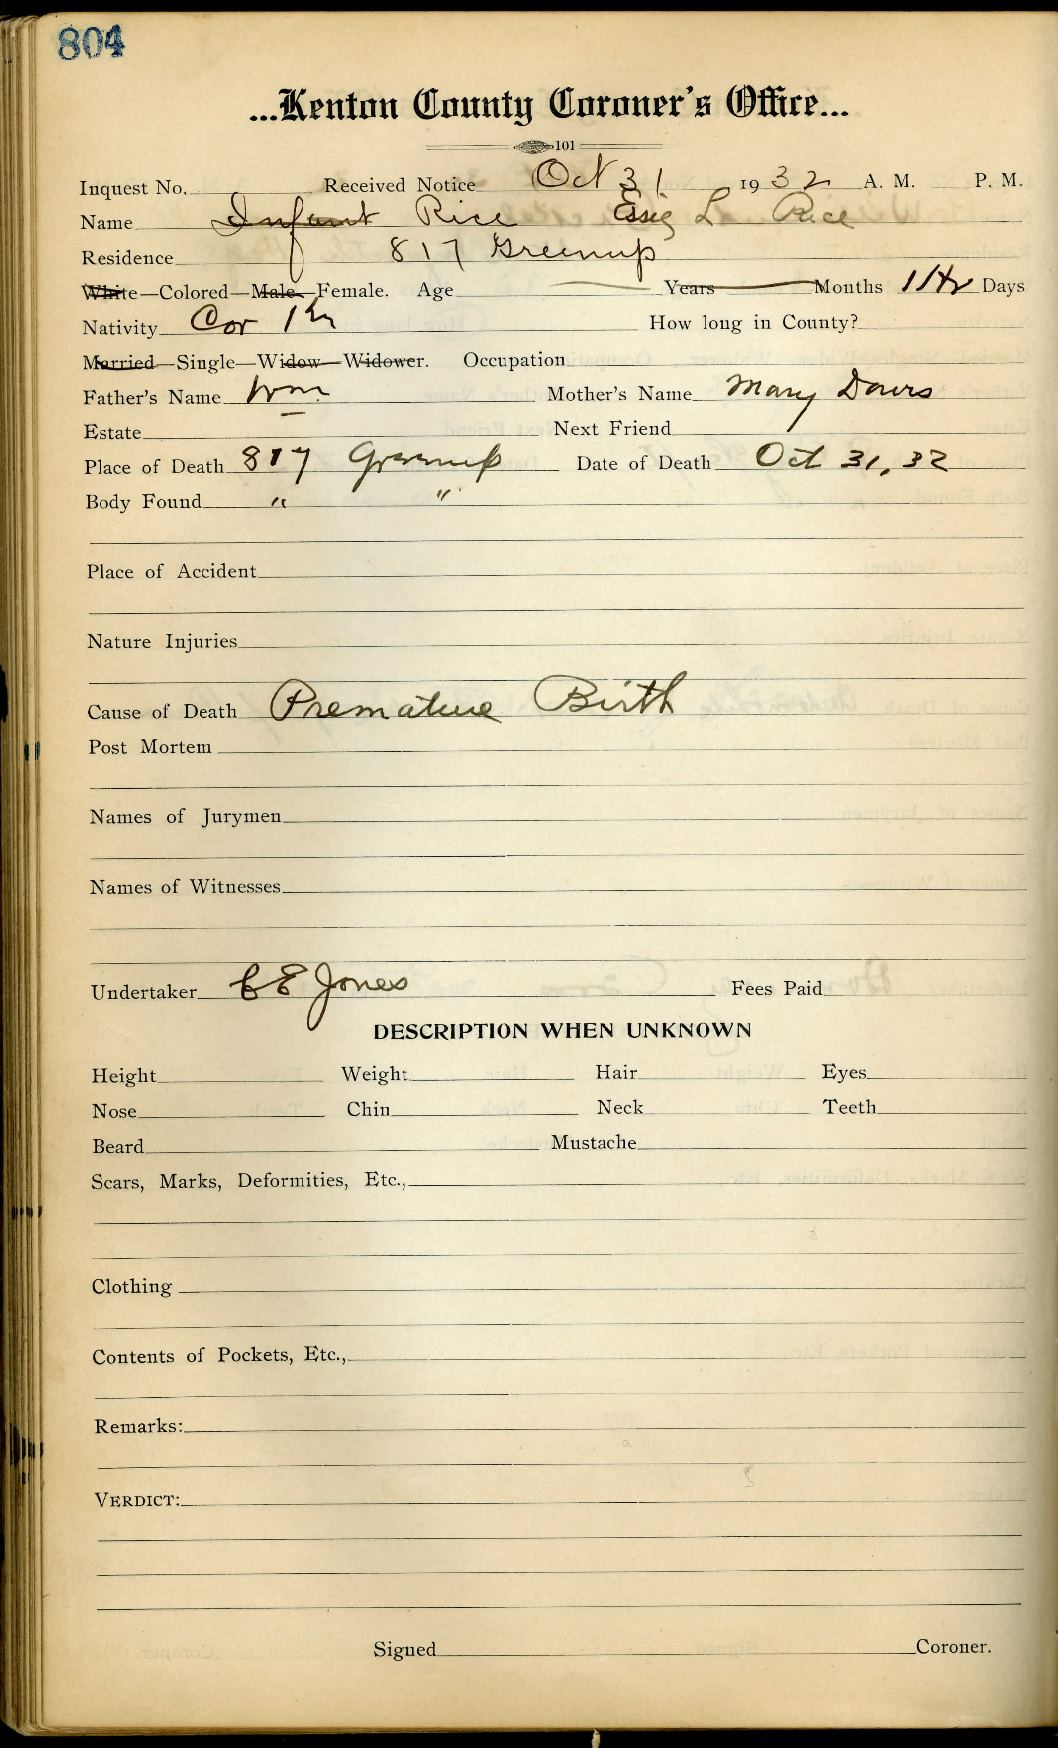 804
...Kenton County Coroner's Office...
101
Inquest No. Received Notice Oct 31 1932 A. M. P. M.
Name Infant Rice Essie L. Rice
Residence 817 Greenup
White—Colored—Male—Female. Age Years Months 1 Hr Days
Nativity Cov Ky How long in County?
Married—Single—Widow—Widower. Occupation
Father's Name Wm Mother's Name Mary
Estate Next Friend
Place of Death 817 Greenup Date of Death Oct 31, 32
Body Found " "
Place of Accident
Nature Injuries
Cause of Death Premature Birth
Post Mortem
Names of Jurymen
Names of Witnesses
Undertaker C E Jones Fees Paid
DESCRIPTION WHEN UNKNOWN
Height Weight Hair Eyes
Nose Chin Neck Teeth
Beard Mustache
Scars, Marks, Deformities, Etc.,
Clothing
Contents of Pockets, Etc.,
Remarks:
VERDICT:
Signed Coroner.